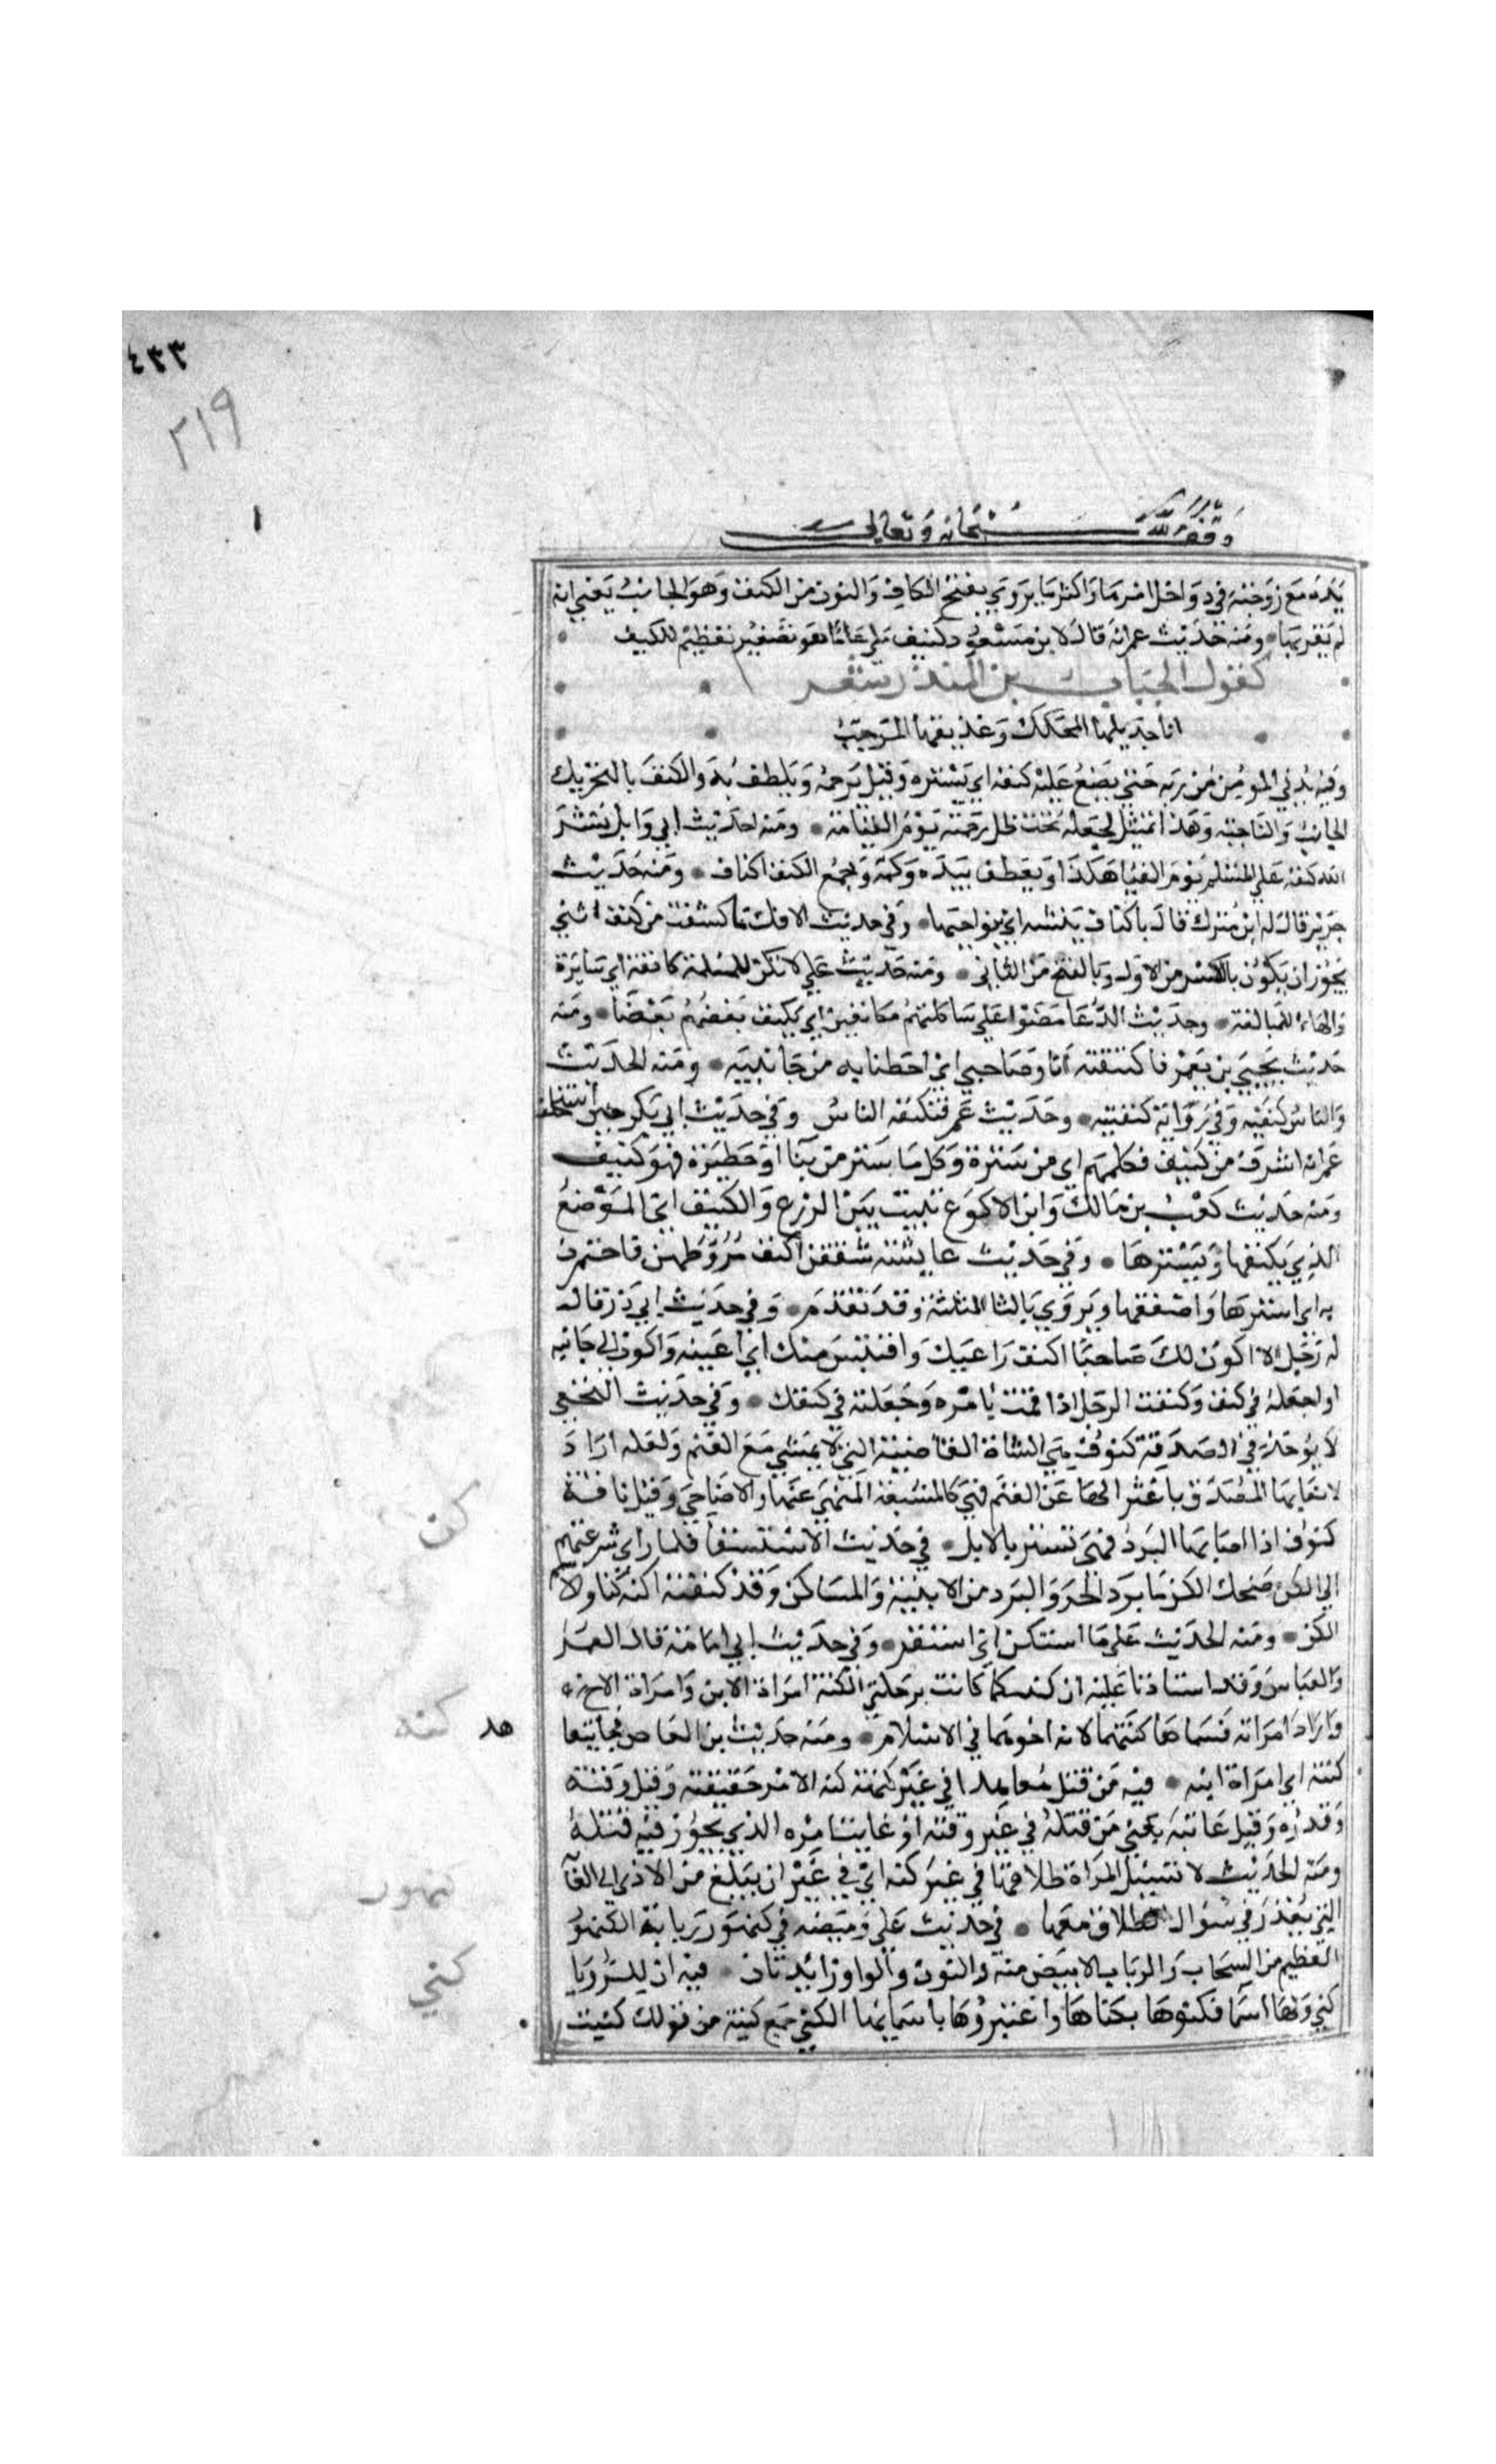 ٤٣٣
٢١٩
١
وقف لله سبحانه وتعالى
يده مع زوجته في دواخل امرها واكثر ما يروي بفتح الكاف والنون من الكنف وهو الجانب يعني انه
لم يقربها ومنه حديث عمر انه قال لابن مسعود كنيف ملي علما هو تصغير تعظيم للكنيف
كقول الحباب بن المنذر شعر
انا جذيلها المحكك وعذيقها المرجب
وفيه يدني المومن من ربه حتي يضع عليه كنفه اي يستره وقيل يرحمه ويلطف به والكنف بالتحريك
الجانب والناحية وهذا تمثيل لجعله تحت ظل رحمته يوم القيامة ومنه حديث ابي وايل نشر
الله كنفه علي المسلم يوم القيامة هكذا وتعطف بيده وكمه وجمع الكنف اكناف ومنه حديث
جرير قال له اين منزلك قال باكناف بيشه اي نواحيها وفي حديث الافك ما كشفت من كنف انثي
يجوز ان يكون بالكسر من الاول وبالفتح من الثاني ومنه حديث علي لا تكن للمسلمة كانفة اي ساترة
والهاء للمبالغة وحديث الدعا مضوا علي شاكلتهم مكانفين اي يكنف بعضهم بعضا ومنه
حديث يحيي بن يعمر فاكتنفته انا وصاحبي اي احطنا به من جانبيه ومنه الحديث
والناس كنفيه وفي رواية كنفتيه وحديث عمر فتكنفه الناس وفي حديث ابي بكر حين استخلف
عمر انه اشرف من كنيف فكلمهم اي من سترة وكل ما ستر من بنا او حظيرة فهو كنيف
ومنه حديث كعب بن مالك وابن الاكوع تبيت بين الزرع والكنيف اي الموضع
الذي يكنفها ويسترها وفي حديث عايشة شققن اكنف مروطهن فاختمرن
به اي استرها واصفقها ويروي بالثا المثلثة وقد تقدم وفي حديث ابي ذر قال
له رجل الا اكون لك صاحبا اكنف راعيك واقتبس منك اي اعينه واكون الي جانبه
او اجعله في كنف وكنفت الرجل اذا قمت بامره وجعلته في كنفك وفي حديث النخعي
لا يوخذ في الصدقة كنوف هي الشاة القاصية التي لا تمشي مع الغنم ولعله اراد
لاتعابها المصدق باعتزالها عن الغنم فهي كالمشيعة المنهي عنها والاضاحي وقيل ناقة
كنوف اذا اصابها البرد فهي تستتر بالابل في حديث الاستسقا فلما راي سرعتهم
الي الكن ضحك الكن ما يرد الحر والبرد من الابنية والمساكن وقد كننته اكنه كنا والاسم
الكن ومنه الحديث علي ما استكن اي استتر وفي حديث ابي امامة قال لعمر
والعباس وقد استاذنا عليه ان كنتكما كانت ترجلني الكنة امراة الابن وامراة الاخ
واراد امراته فسماها كنتهما لانه اخوهما في الاسلام ومنه حديث بن العاص فجا يتعاهد
كنته اي امراة ابنه فيه من قتل معاهدا في غير كنهه كنه الامر حقيقته وقيل وقته
وقدره وقيل غايته يعني من قتله في غير وقته او غاية امره الذي يجوز فيه قتله
ومنه الحديث لا تسيل المراة طلاقها في غير كنهه اي في غير ان تبلغ من الاذي الي الغاية
التي تعذر في سوال الطلاق معها في حديث علي وميضه في كنهور ربابه الكنهور
العظيم من السحاب والرباب الابيض منه والنون والواو زائدتان فيه ان للرويا
كني ولها اسما فكنوها بكناها واعتبروها باسمايها الكني جمع كنية من قولك كنيت
كنن
كنه
كنهور
كني